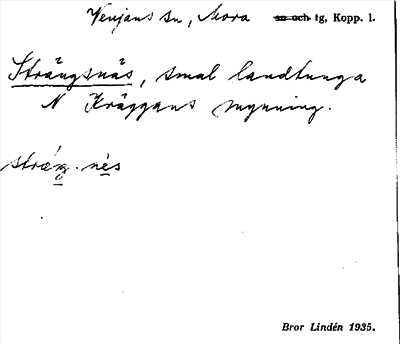 Venjans sn, Mora ~~sn och~~ tg, Kopp. l.
Strängsnäs, smal landtunga
N Kräggans mynning.
stræŋ.nès
Bror Lindén 1935.